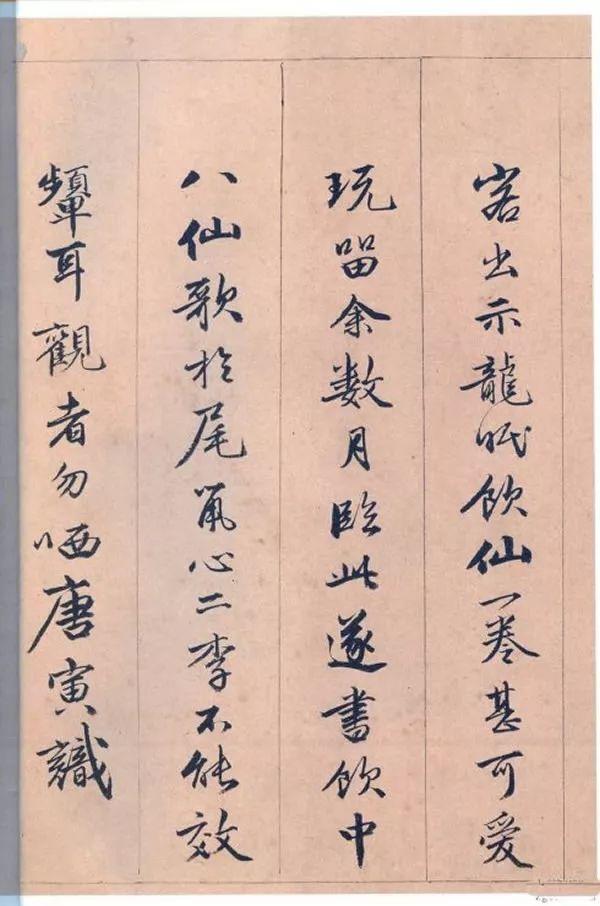 客出示龍眠飲仙一卷甚可愛
玩留余数月臨此遂書飲中
八仙歌於尾鼠心二李不能效
顰耳觀者勿哂唐寅識